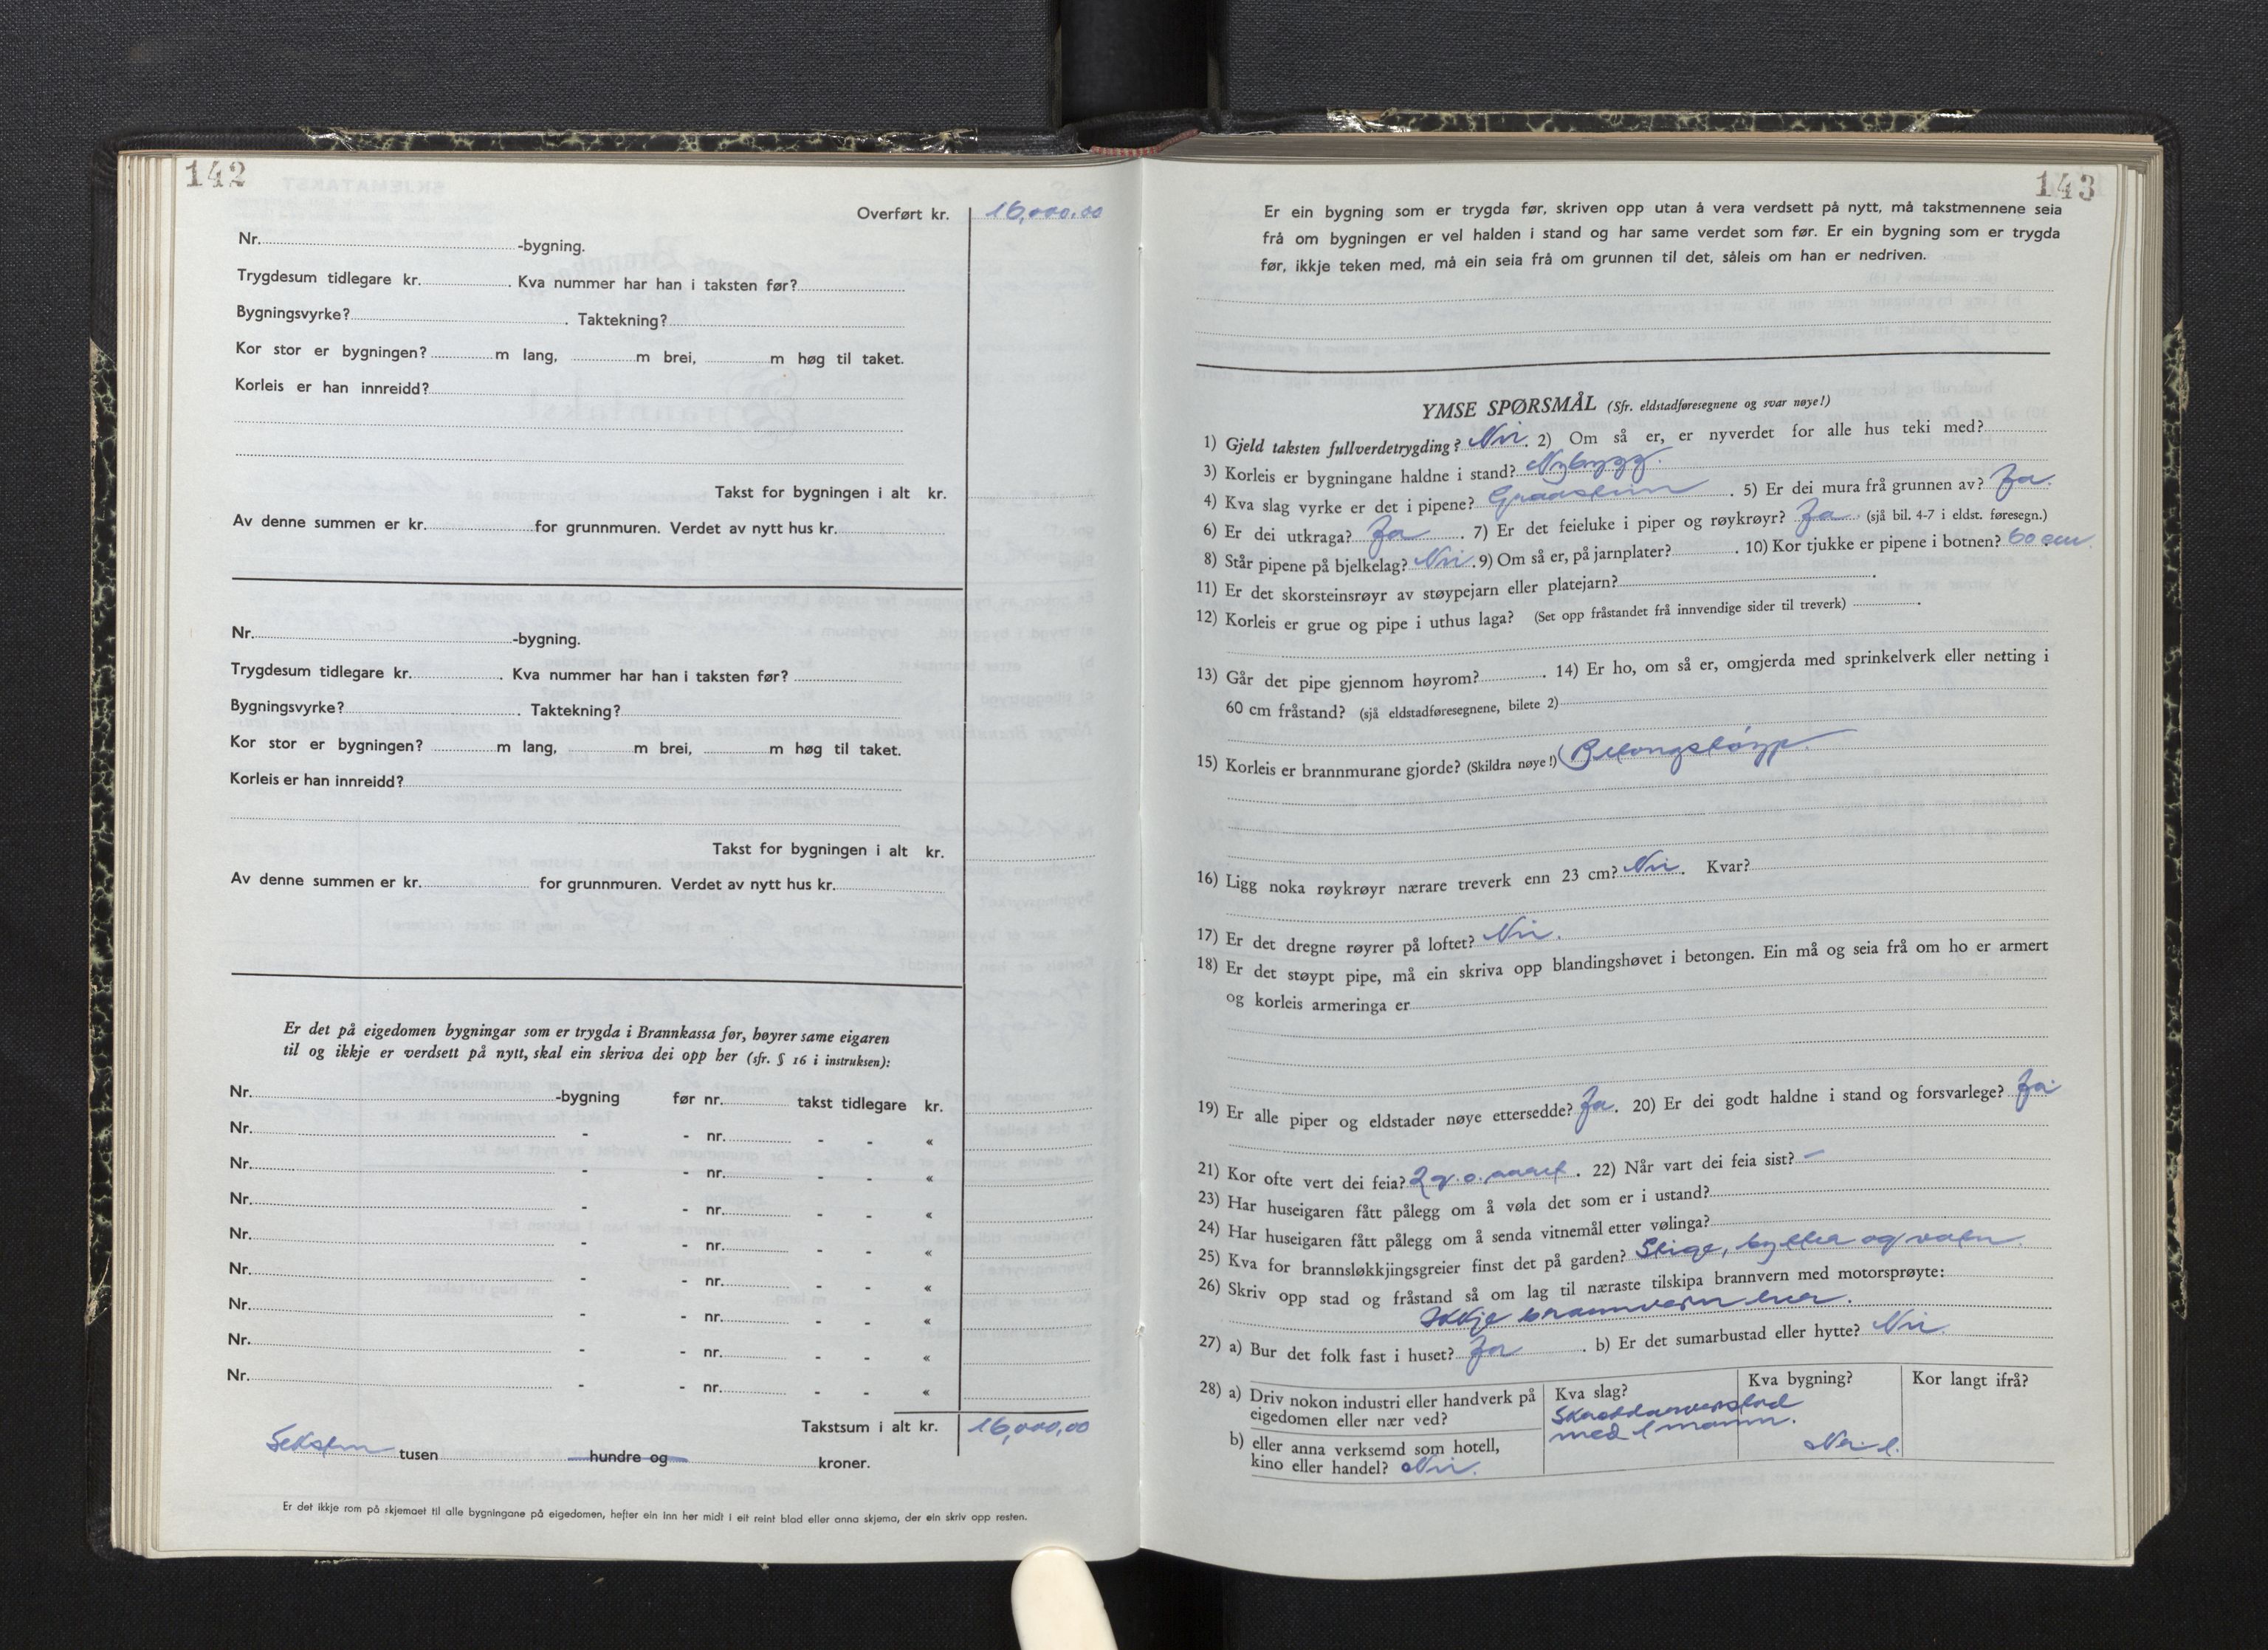 142
Overført kr. 16,000.00
Nr. -bygning.
Trygdesum tidlegare kr. . Kva nummer har han i taksten før?
Bygningsvyrke? . Taktekning?
Kor stor er bygningen? m lang, m brei, m høg til taket.
Korleis er han innreidd?
Takst for bygningen i alt kr.
Av denne summen er kr. for grunnmuren. Verdet av nytt hus kr.
Nr. -bygning.
Trygdesum tidlegare kr. . Kva nummer har han i taksten før?
Bygningsvyrke? . Taktekning?
Kor stor er bygningen? m lang, m brei, m høg til taket.
Korleis er han innreidd?
Takst for bygningen i alt kr.
Av denne summen er kr. for grunnmuren. Verdet av nytt hus kr.
Er det på eigedomen bygningar som er trygda i Brannkassa før, høyrer same eigaren
til og ikkje er verdsett på nytt, skal ein skriva dei opp her (sfr. § 16 i instruksen):
Nr. -bygning før nr. takst tidlegare kr.
Nr. - - nr. - - «
Nr. - - nr. - - «
Nr. - - nr. - - «
Nr. - - nr. - - «
Nr. - - nr. - - «
Nr. - - nr. - - «
Nr. - - nr. - - «
Nr. - - nr. - - «
Takstsum i alt kr. 16,000,00
Seksten tusen hundre og kroner.
Er det ikkje rom på skjemaet til alle bygningane på eigedomen, hefter ein inn her midt i eit reint blad eller anna skjema, der ein skriv opp resten.
143
Er ein bygning som er trygda før, skriven opp utan å vera verdsett på nytt, må takstmennene seia
frå om bygningen er vel halden i stand og har same verdet som før. Er ein bygning som er trygda
før, ikkje teken med, må ein seia frå om grunnen til det, såleis om han er nedriven.
YMSE SPØRSMÅL (Sfr. eldstadføresegnene og svar nøye!)
1) Gjeld taksten fullverdetrygding? Nei. 2) Om så er, er nyverdet for alle hus teki med?
3) Korleis er bygningane haldne i stand? Nybygg.
4) Kva slag vyrke er det i pipene? Graastein . 5) Er dei mura frå grunnen av? Ja.
6) Er dei utkraga? Ja . 7) Er det feieluke i piper og røykrøyr? Ja (sjå bil. 4-7 i eldst. føresegn.)
8) Står pipene på bjelkelag? Nei. 9) Om så er, på jarnplater? . 10) Kor tjukke er pipene i botnen? 60 cm.
11) Er det skorsteinsrøyr av støypejarn eller platejarn? .
12) Korleis er grue og pipe i uthus laga? (Set opp fråstandet frå innvendige sider til treverk) .
13) Går det pipe gjennom høyrom? . 14) Er ho, om så er, omgjerda med sprinkelverk eller netting i
60 cm fråstand? (sjå eldstadføresegnene, bilete 2)
15) Korleis er brannmurane gjorde? (Skildra nøye!) Betongstøyp.
16) Ligg noka røykrøyr nærare treverk enn 23 cm? Nei. Kvar?
17) Er det dregne røyrer på loftet? Nei.
18) Er det støypt pipe, må ein skriva opp blandingshøvet i betongen. Ein må og seia frå om ho er armert
og korleis armeringa er
19) Er alle piper og eldstader nøye ettersedde? Ja. 20) Er dei godt haldne i stand og forsvarlege? Ja
21) Kor ofte vert dei feia? 2 g. o. aaret. 22) Når vart dei feia sist? -
23) Har huseigaren fått pålegg om å vøla det som er i ustand?
24) Har huseigaren fått pålegg om å senda vitnemål etter vølinga?
25) Kva for brannsløkkjingsgreier finst det på garden? Stige, bytter og vatn.
26) Skriv opp stad og fråstand så om lag til næraste tilskipa brannvern med motorsprøyte:
Ikkje brannvern her.
27) a) Bur det folk fast i huset? Ja . b) Er det sumarbustad eller hytte? Nei.
28) a) Driv nokon industri eller handverk på
eigedomen eller nær ved?
Kva slag?
Skreddarverkstad
med 1 mann.
Kva bygning?
Nr. 1.
Kor langt ifrå?
b) eller anna verksemd som hotell,
kino eller handel? Nei.